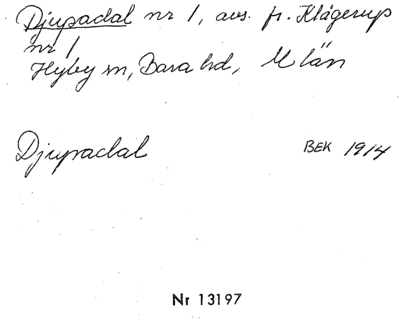 Djupadal nr 1, avs. fr. Klågerup
nr 1
Hyby sn, Bara hd, M län
Djupadal BEK 1914
Nr 13197